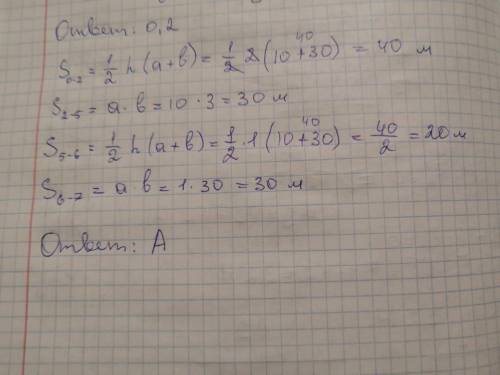 Ответ: 0,2
S₀₋₂ = 1/2 h (a+b) = 1/2 2 (10+30) 40 = 40 м
S₂₋₅ = a · b = 10 · 3 = 30 м
S₅₋₆ = 1/2 h (a+b) = 1/2 · 1 (10+30) 40 = 40/2 = 20 м
S₆₋₇ = a · b = 1 · 30 = 30 м
Ответ: А